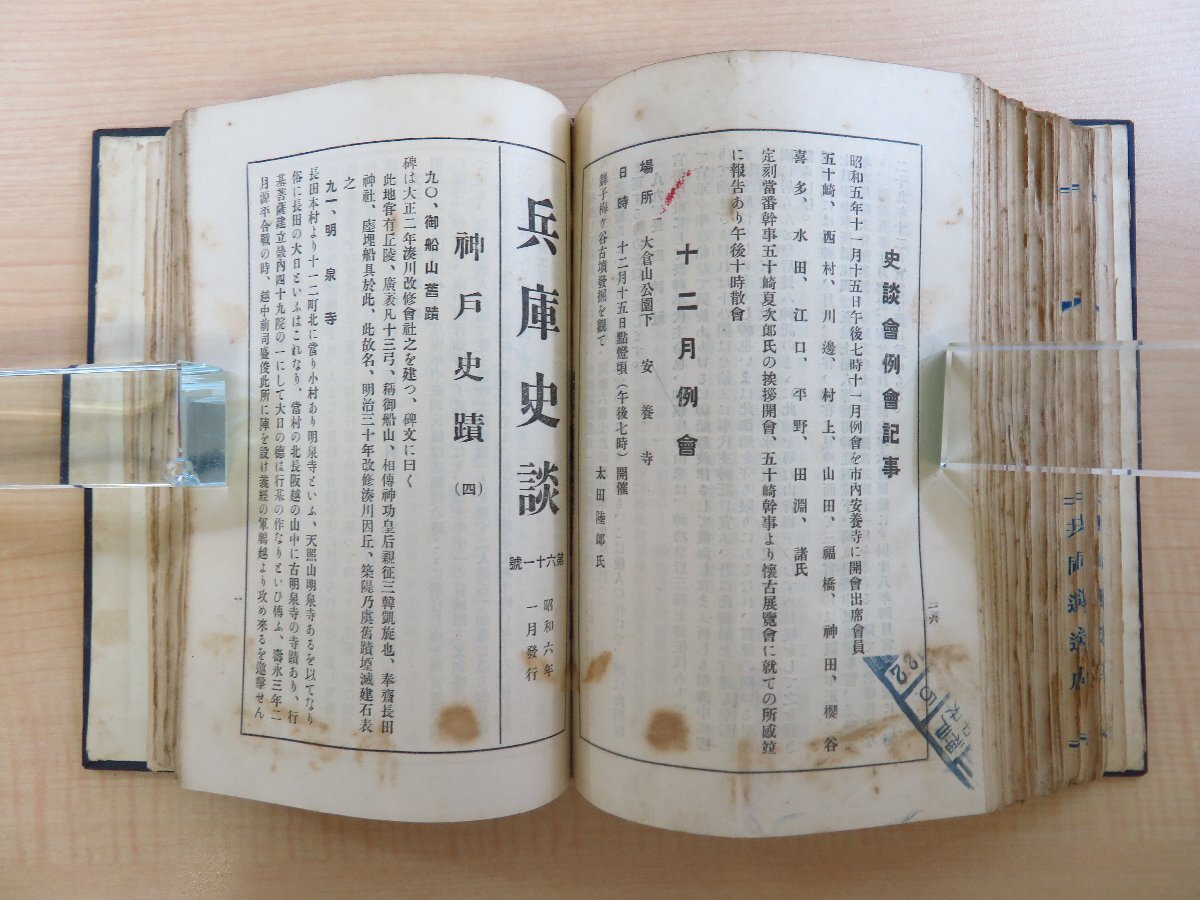 史談會例會記事
昭和五年十一月十五日午後七時十一月例會を市內安養寺に開會出席會員
五十崎、西村、川邊、村上、山田、福橋、神田、櫻谷
喜多、水田、江口、平野、田淵、諸氏
定刻當番幹事五十崎夏次郎氏の挨拶開會、五十崎幹事より懷古展覽會に就ての所感竝
に報告あり午後十時散會
十二月例會
場所 大倉山公園下 安養寺
日時 十二月十五日點燈頃(午後七時)開催
舞子梅ヶ谷古墳發掘を觀て 太田陸郞氏
一六
兵庫史談
第六十一號
昭和六年
一月發行
神戶史蹟(四)
九〇、御船山舊蹟
碑は大正二年湊川改修會社之を建つ、碑文に曰く
此地甞有丘陵、廣袤凡十三弓、稱御船山、相傳神功皇后親征三韓凱旋也、奉齋長田
神社、壓埋船具於此、此故名、明治三十年改修湊川因丘、築隄乃虞舊蹟堙滅建石表
之
九一、明泉寺
長田本村より十一二町北に當り小村あり明泉寺といふ、天照山明泉寺あるを以てなり
俗に長田の大日といふはこれなり、當村の北長阪越の山中に古明泉寺の寺蹟あり、行
基菩薩建立畿內四十九院の一にして大日の德は行基の作なりといひ傳ふ、壽永三年二
月源平合戰の時、越中前司盛俊此所に陣を設け義經の軍鵯越より攻め來るを邀擊せん
一